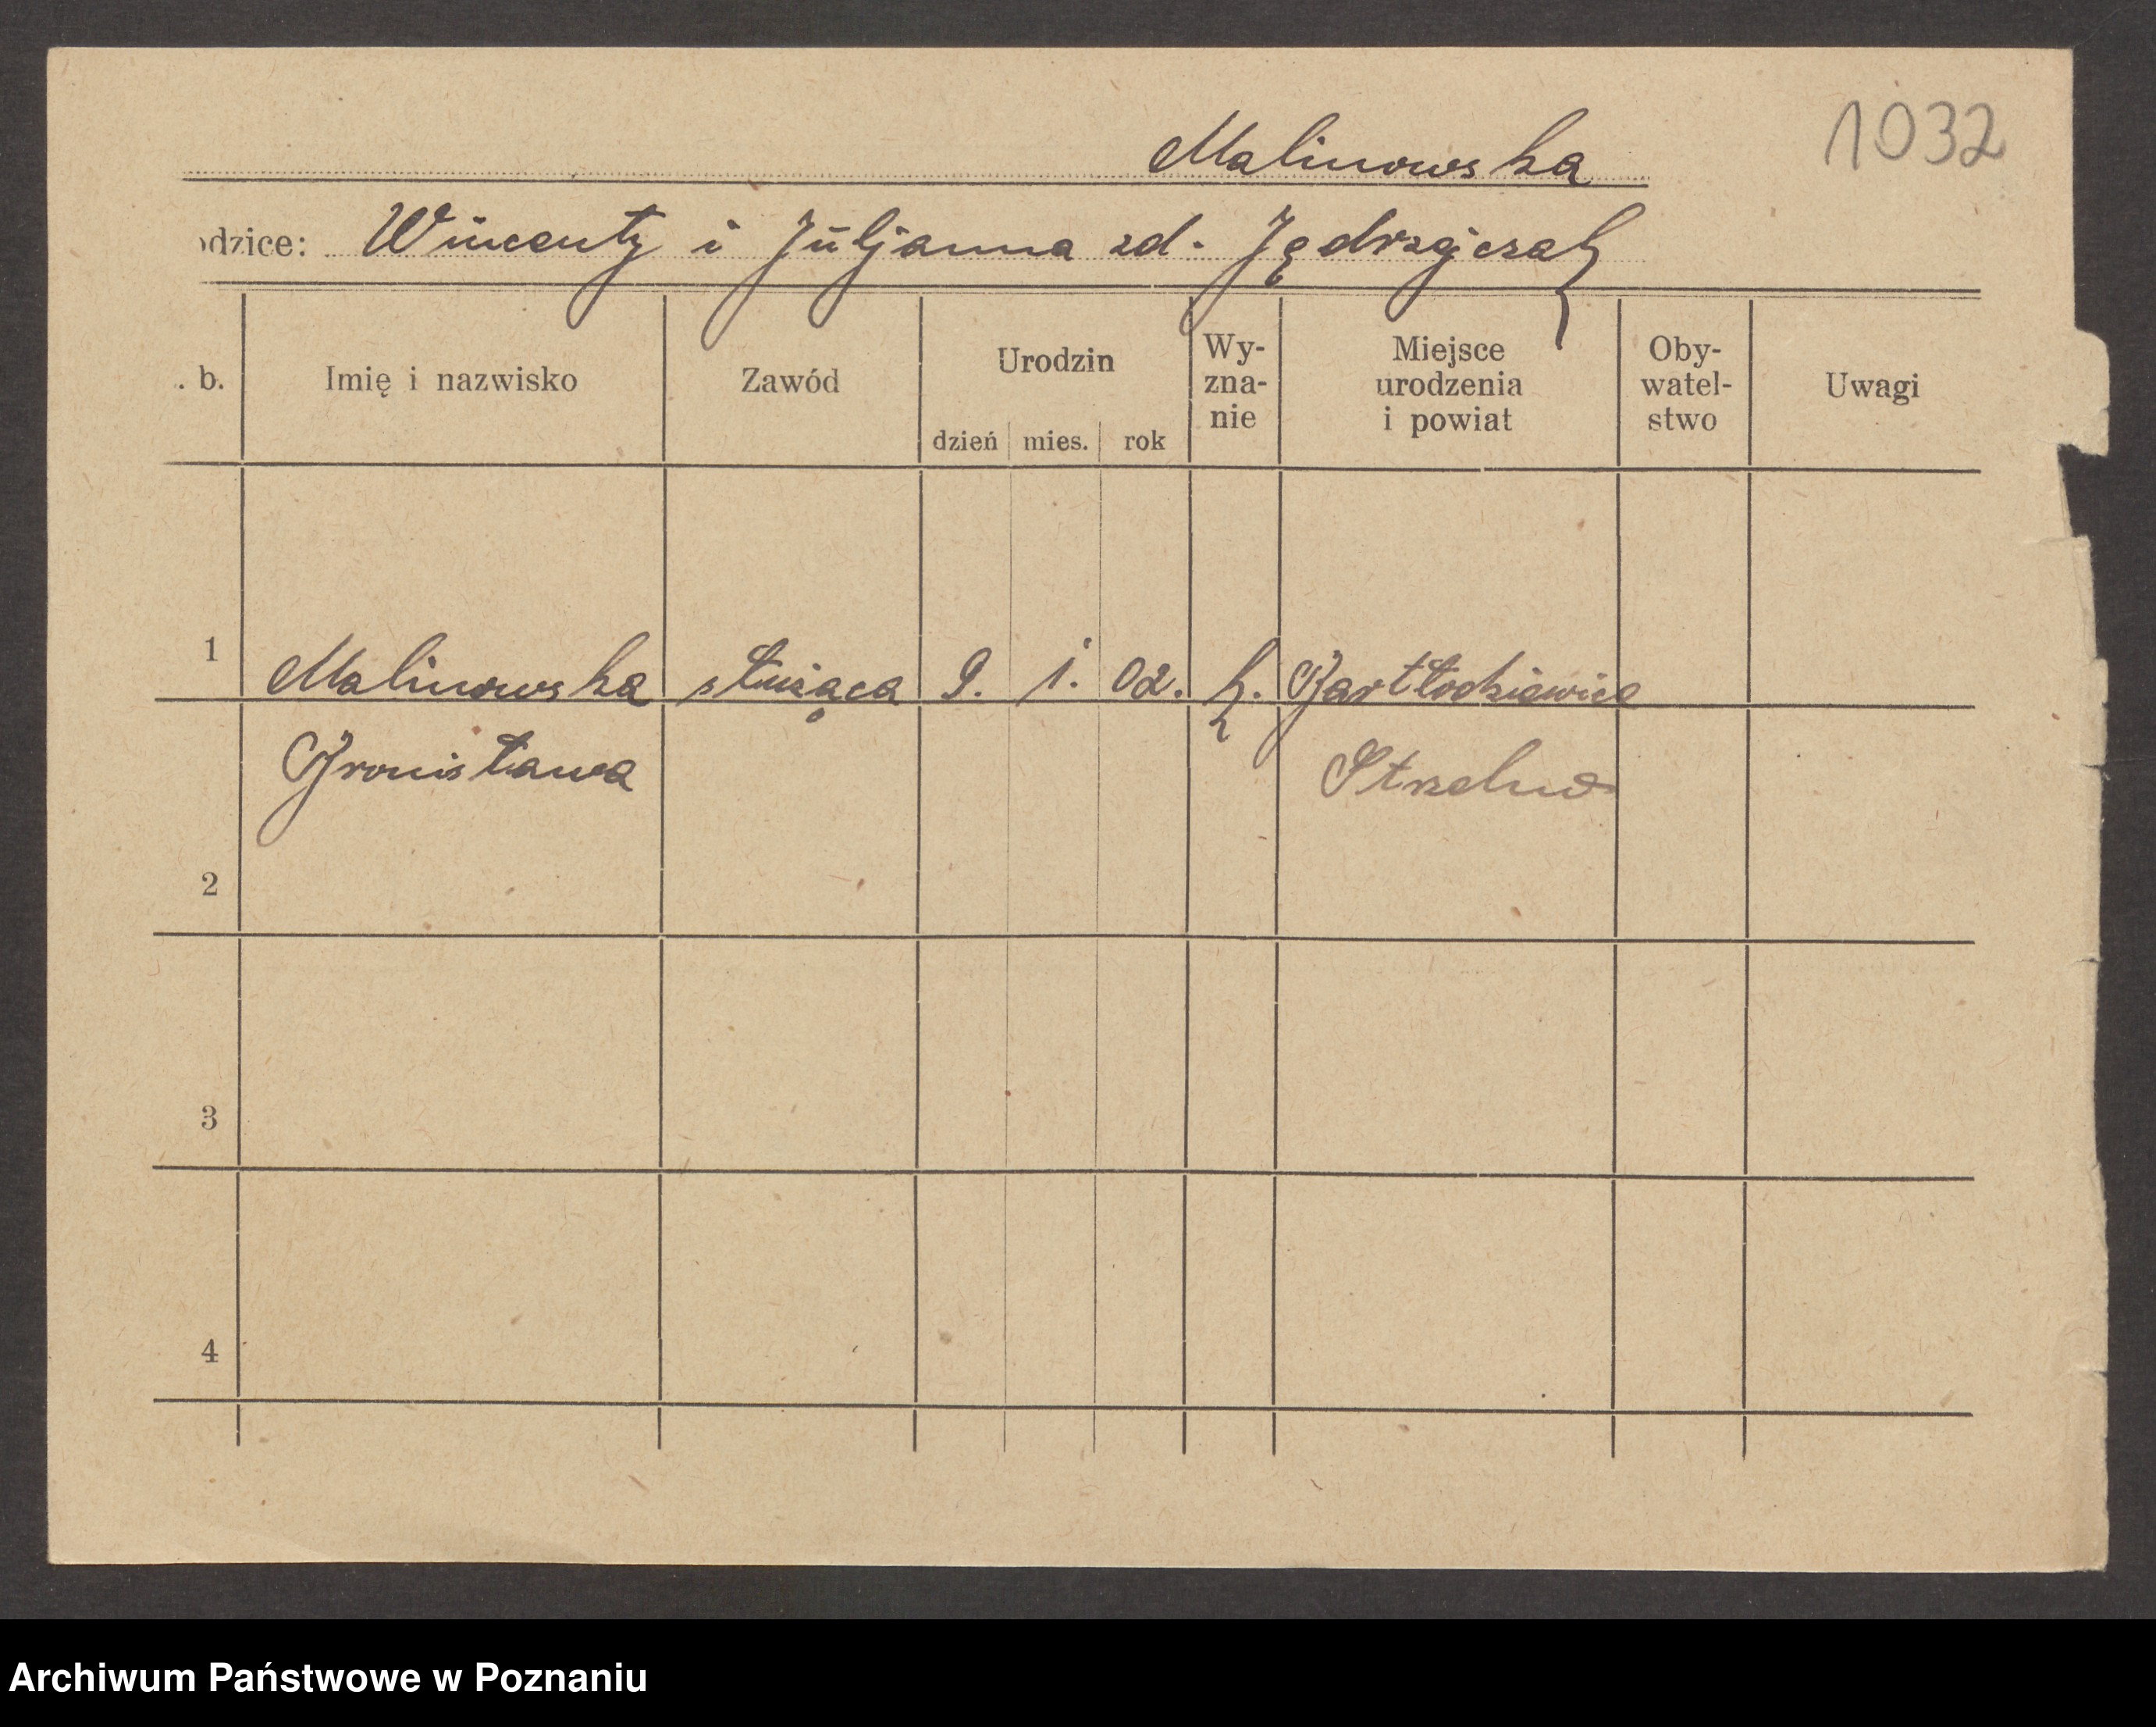 1032
Malinowska
odzice: Wincenty i Juljanna zd. Jędrzejczak
. b. Imię i nazwisko Zawód Urodzin dzień mies. rok Wy- zna- nie Miejsce urodzenia i powiat Oby- watel- stwo Uwagi
1 Malinowska służąca 9. 1. 02. k.
Bronisława Strzelno
2
3
4
Archiwum Państwowe w Poznaniu